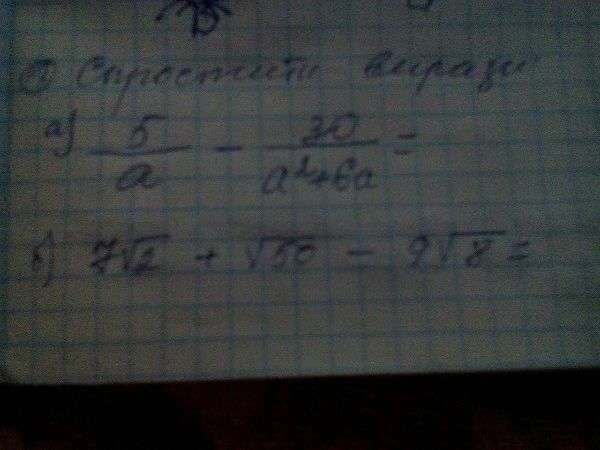 ① Спростити вирази
а) 5/a - 30/a²+6a =
б) 7√2 + √50 - 2√8 =